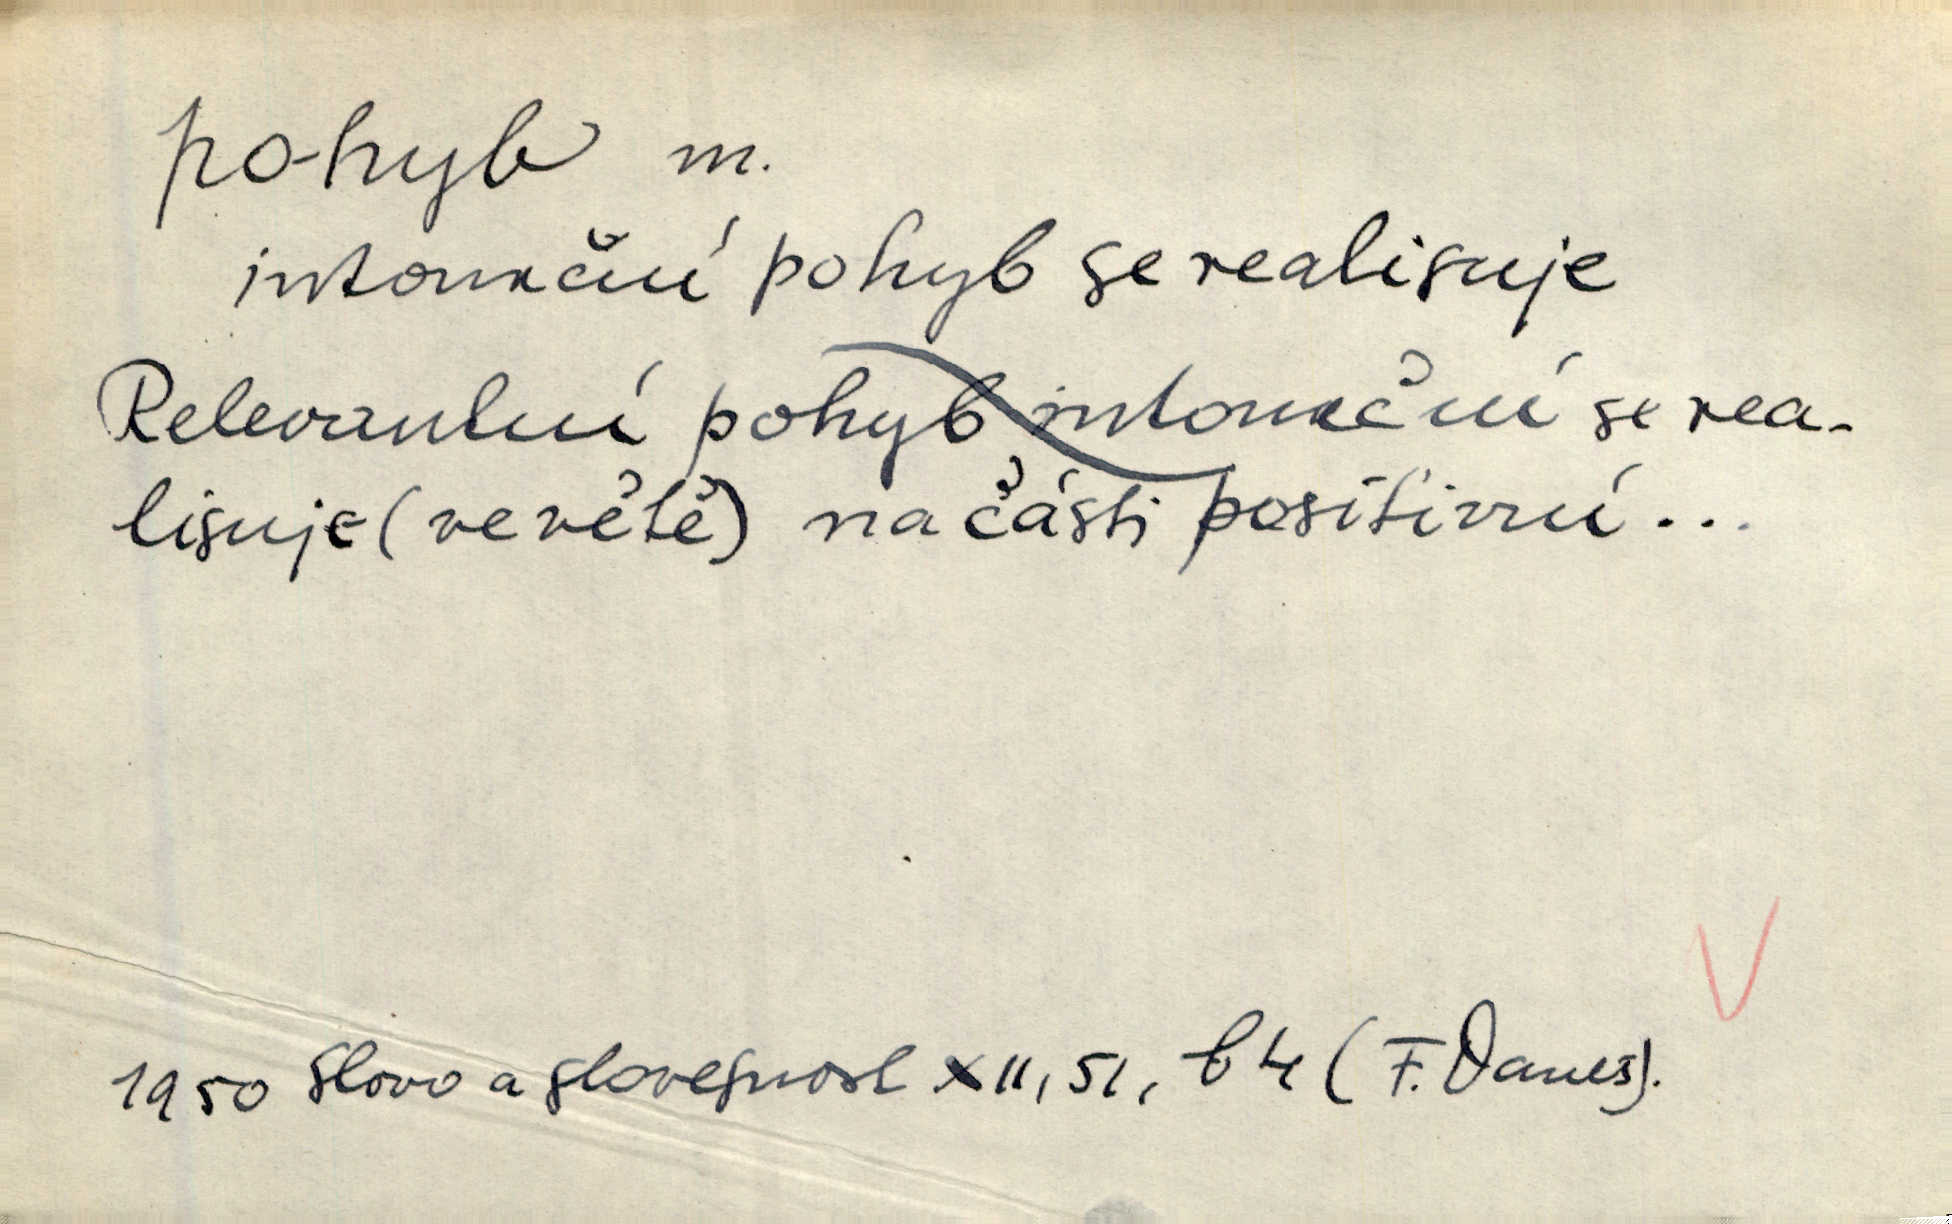 pohyb m.
intonační pohyb se realisuje
Relevantní pohyb intonační se rea-
lisuje (ve větě) na části positivní...
V
1950 Slovo a slovesnost XII, 51, b4 (F. Daneš).